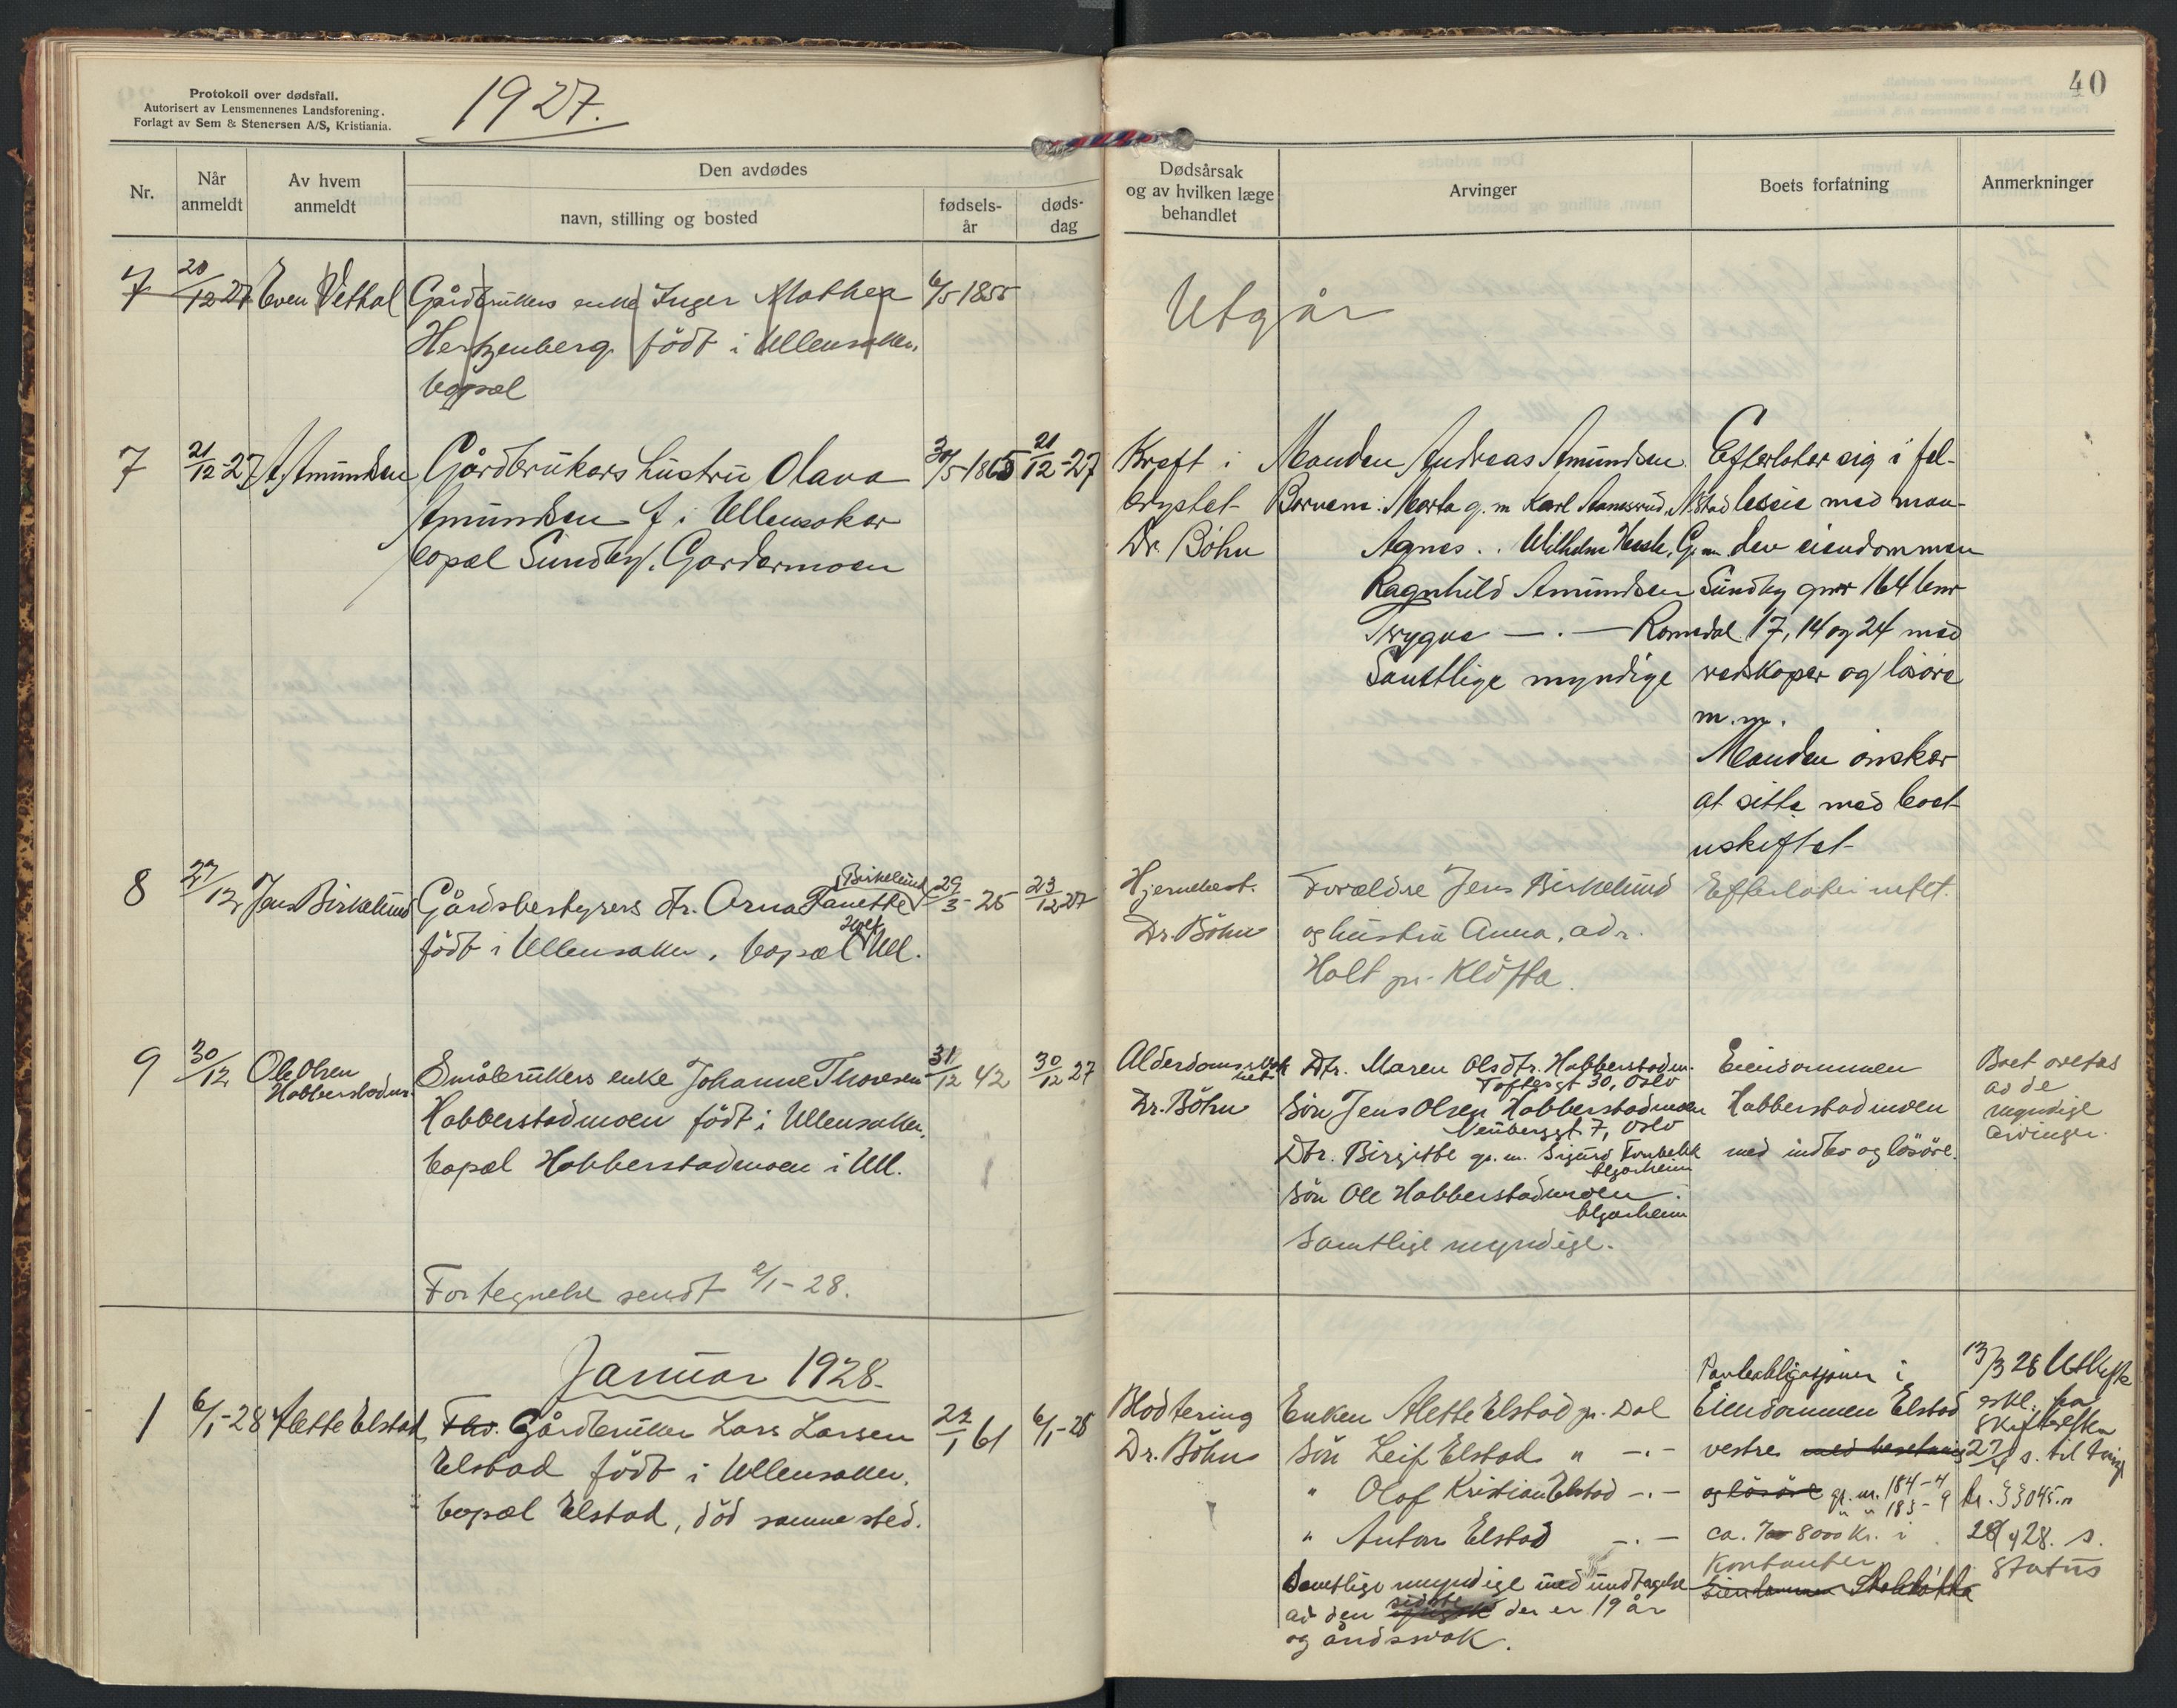 Protokoll over dødsfall.
Autorisert av Lensmennenes Landsforening.
Forlagt av Sem & Stenersen A/S, Kristiania.
1927.
Nr.
Når anmeldt
Av hvem anmeldt
Den avdødes
navn, stilling og bosted
fødsels-år
døds-dag
7 20/12 27 Even Vethal Gårdbrukers enke Inger Mathea 6/5 1855
Hertzenberg født i Ullensaker,
bopæl
7 21/12-27 A. Amundsen Gårdbrukers hustru Olava 30/5-1865 21/12-27
Amundsen f. i Ullensaker
bopæl Sundby, Gardermoen
8 27/12 Jens Birkelund Gårdsbestyrers dtr. Arna Fanette Birkelund 29/3-25 23/12 27
født i Ullensaker, bopæl Holt Ull.
9 30/12 Ole Olsen Småbrukers enke Johanne Thoresen 31/12 42 30/12 27
Habberstadm.
Habberstadmoen født i Ullensaker,
bopæl Habberstadmoen i Ull.
Fortegnelse sendt 2/1-28.
Januar 1928.
1 6/1-28 Alette Elstad Fhv. Gårdbruker Lars Larsen 27/1 61 6/1-28
Elstad født i Ullensaker,
bopæl Elstad, død samme sted.
40
Dødsårsak
og av hvilken læge
behandlet
Arvinger
Boets forfatning
Anmerkninger
Utgår
Kreft i Manden Andreas Amundsen. Efterlater sig i fel-
brystet Barnem: Marta g. m. Karl N.stad lesseie med man-
Dr. Bøhn Agnes . . Wilhelm G.m. den eiendommen
Ragnhild Amundsen Sundby gnr 164 bnr
Trygve — . — Romedal 17, 14 og 24 med
Samtlige myndige redskaper og løsøre
m. m.
Manden ønsker
at sitte med boet
uskiftet
Hjernebet. Forældre Jens Birkelund Efterlater intet.
Dr. Bøhn og hustru Anna, adr.
Holt pr. Kløfta.
Alderdomssvakhet Dtr. Maren Olsdtr. Habberstadm. Eiendommen Boet overtas
Toftesgt 30, Oslo av de
Dr. Bøhn Søn Jens Olsen Habberstadmoen Habberstadmoen myndige
Neuberggt. 7, Oslo arvinger.
Dtr. Birgitte g. m. Sigurd med indbo og løsøre.
Algarheim
Søn Ole Habberstadmoen.
Algarheim
Samtlige myndige.
Panteobligasjoner i 13/3 28 Utskifts
Blodtering Enken Alette Elstad pr. Dal Eiendommen Elstad erkl. fra
Skifteretten
Dr. Bøhn Søn Leif Elstad " — . — vestre med besetning 27/4 s. til tingl
" Olaf Kristian Elstad — . — og løsøre g. nr. 184-4 kr. 33045.
" " 183-9
" Anton Elstad — . — ca. 7 8000 kr. i 28/4 28. s.
Kontanter Status
Samtlige myndige med undtagelse Eiendommen
av den yngste sidste der er 19 år
og åndssvak.